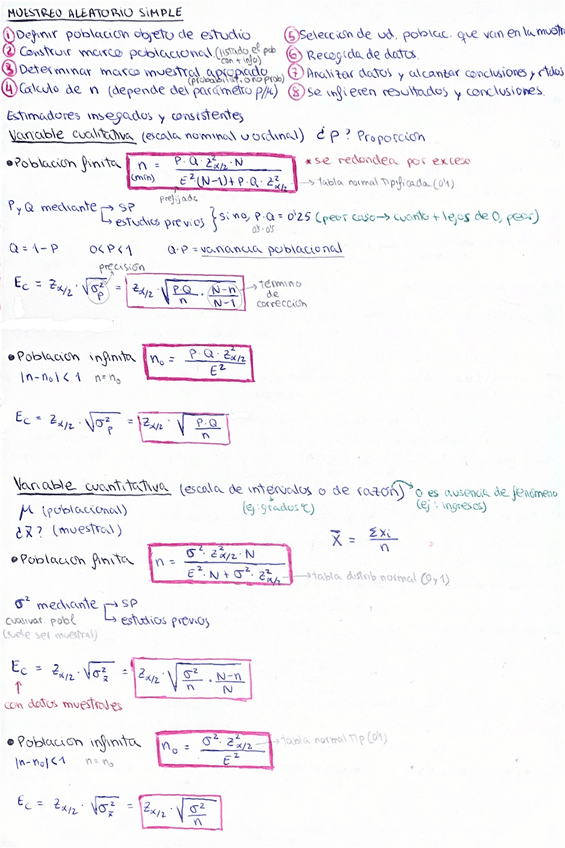 MUESTREO ALEATORIO SIMPLE
① Definir población objeto de estudio
② Construir marco poblacional (listado el pob con + info)
③ Determinar marco muestral apropiado (probabilist. o no prob)
④ Calculo de n (depende del parámetro p/μ)
⑤ Selección de ud. poblac. que van en la muestr
⑥ Recogida de datos.
⑦ Analizar datos y alcanzar conclusiones y rtdos
⑧ Se infieren resultados y conclusiones.
Estimadores insegados y consistentes
Variable cualitativa (escala nominal u ordinal) ¿P? Proporción
• Población finita n (min) = P·Q·Z²α/2·N / E²(N-1)+P·Q·Z²α/2 * se redondea por exceso
→ tabla normal Tipificada (0,1)
prefijada
P y Q mediante → SP
→ estudios previos } sino, P·Q = 0'25 (peor caso → cuanto + lejos de 0, peor)
0'5·0'5
Q = 1-P 0<P<1 Q·P = varianza poblacional
precisión
Ec = Zα/2 · √σ²p = Zα/2 · √P·Q/n · N-n/N-1 → término de corrección
• Población infinita n₀ = P·Q·Z²α/2 / E²
|n-n₀|<1 n=n₀
Ec = Zα/2 · √σ²p = Zα/2 · √P·Q/n
Variable cuantitativa (escala de intervalos o de razón) → 0 es ausencia de fenómeno
(ej: grados ℃) (ej: ingresos)
μ (poblacional)
¿x̄? (muestral) X̄ = Σxi / n
• Población finita n = σ²·Z²α/2·N / E²·N + σ²·Z²α/2 → tabla distrib normal (0,1)
σ² mediante → SP
cuasivar. pobl → estudios previos
(suele ser muestral)
Ec = Zα/2 · √σ²x̄ = Zα/2 · √σ²/n · N-n/N
↑
con datos muestrales
• Población infinita n₀ = σ²·Z²α/2 / E² → tabla normal Tip (0,1)
|n-n₀|<1 n=n₀
Ec = Zα/2 · √σ²x̄ = Zα/2 · √σ²/n